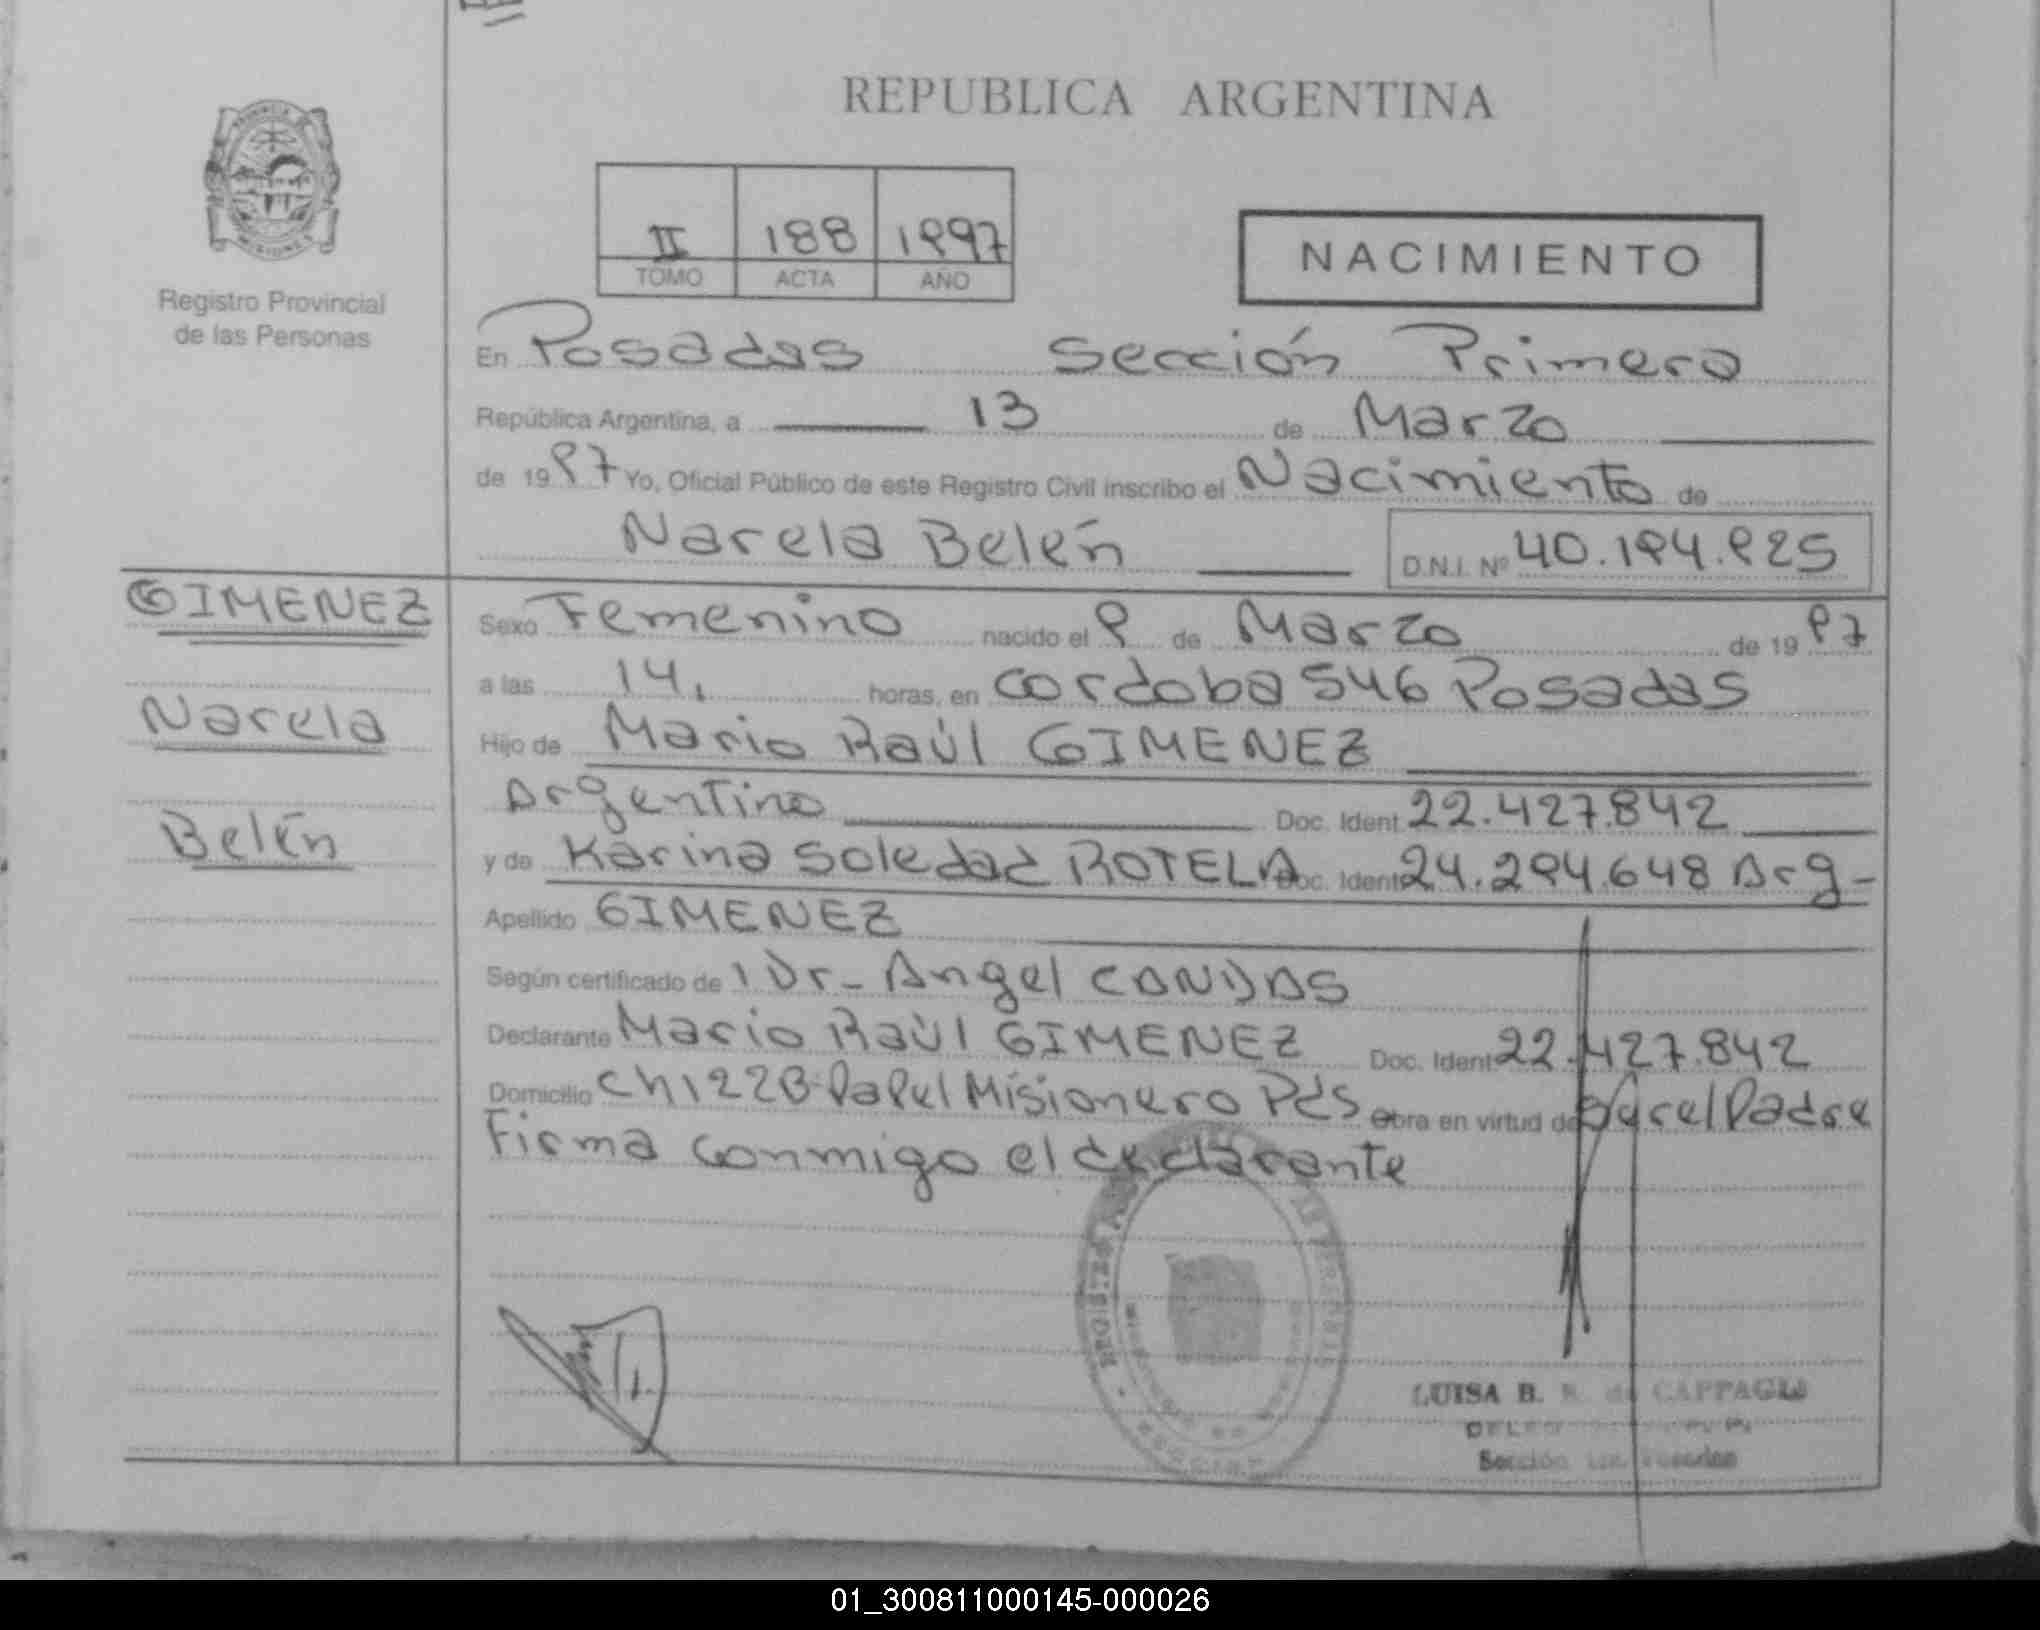 REPUBLICA ARGENTINA
II 188 1997
TOMO ACTA AÑO
NACIMIENTO
Registro Provincial
de las Personas
En Posadas Sección Primera
República Argentina, a 13 de Marzo
de 1997 Yo, Oficial Público de este Registro Civil inscribo el Nacimiento de
Narela Belén D.N.I. Nº 40.194.925
GIMENEZ
Narela
Belén
Sexo Femenino nacido el 9 de Marzo de 1997
a las 14, horas, en Cordoba 546 Posadas
Hijo de Mario Raúl GIMENEZ
Argentino Doc. Ident 22.427.842
y de Karina Soledad ROTELA Doc. Ident 24.294.648 Arg-
Apellido GIMENEZ
Según certificado de Dr- Angel CANDAS
Declarante Mario Raúl GIMENEZ Doc. Ident 22.427.842
Domicilio Ch 122 Papel Misionero Pds Obra en virtud de Padre
Firma conmigo el declarante
LUISA B. de CAPPAGLI
Sección
01_300811000145-000026